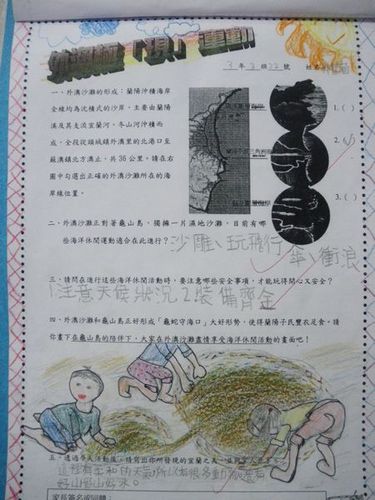 外澳極「現」運動
3 年 2 班 22 號 姓名
一、外澳沙灘的形成：蘭陽沖積海岸
全線均為沈積式的沙岸，主要由蘭陽
溪及其支流宜蘭河、冬山河沖積而
成，全段從頭城鎮外澳里的北港口至
蘇澳鎮北方澳止，共 36 公里。請在右
圖中勾選出正確的外澳沙灘所在的海
岸線位置。
1.( )
2.(✓)
3.( )
二、外澳沙灘正對著龜山島，獨擁一片濕地沙灘，目前有哪
些海洋休閒運動適合在此進行？沙雕、玩飛行傘、衝浪
三、請問在進行這些海洋休閒活動時，要注意哪些安全事項，才能玩得開心又安全？
1注意天候狀況 2裝備齊全
四、外澳沙灘和龜山島正好形成「龜蛇守海口」大好形勢，使得蘭陽子民豐衣足食，請
你畫下在龜山島的陪伴下，大家在外澳沙灘盡情享受海洋休閒活動的畫面吧！
五、透過今天活動後，請寫出你所發現的宜蘭之美
好山好山好水。
家長簽名或回饋：